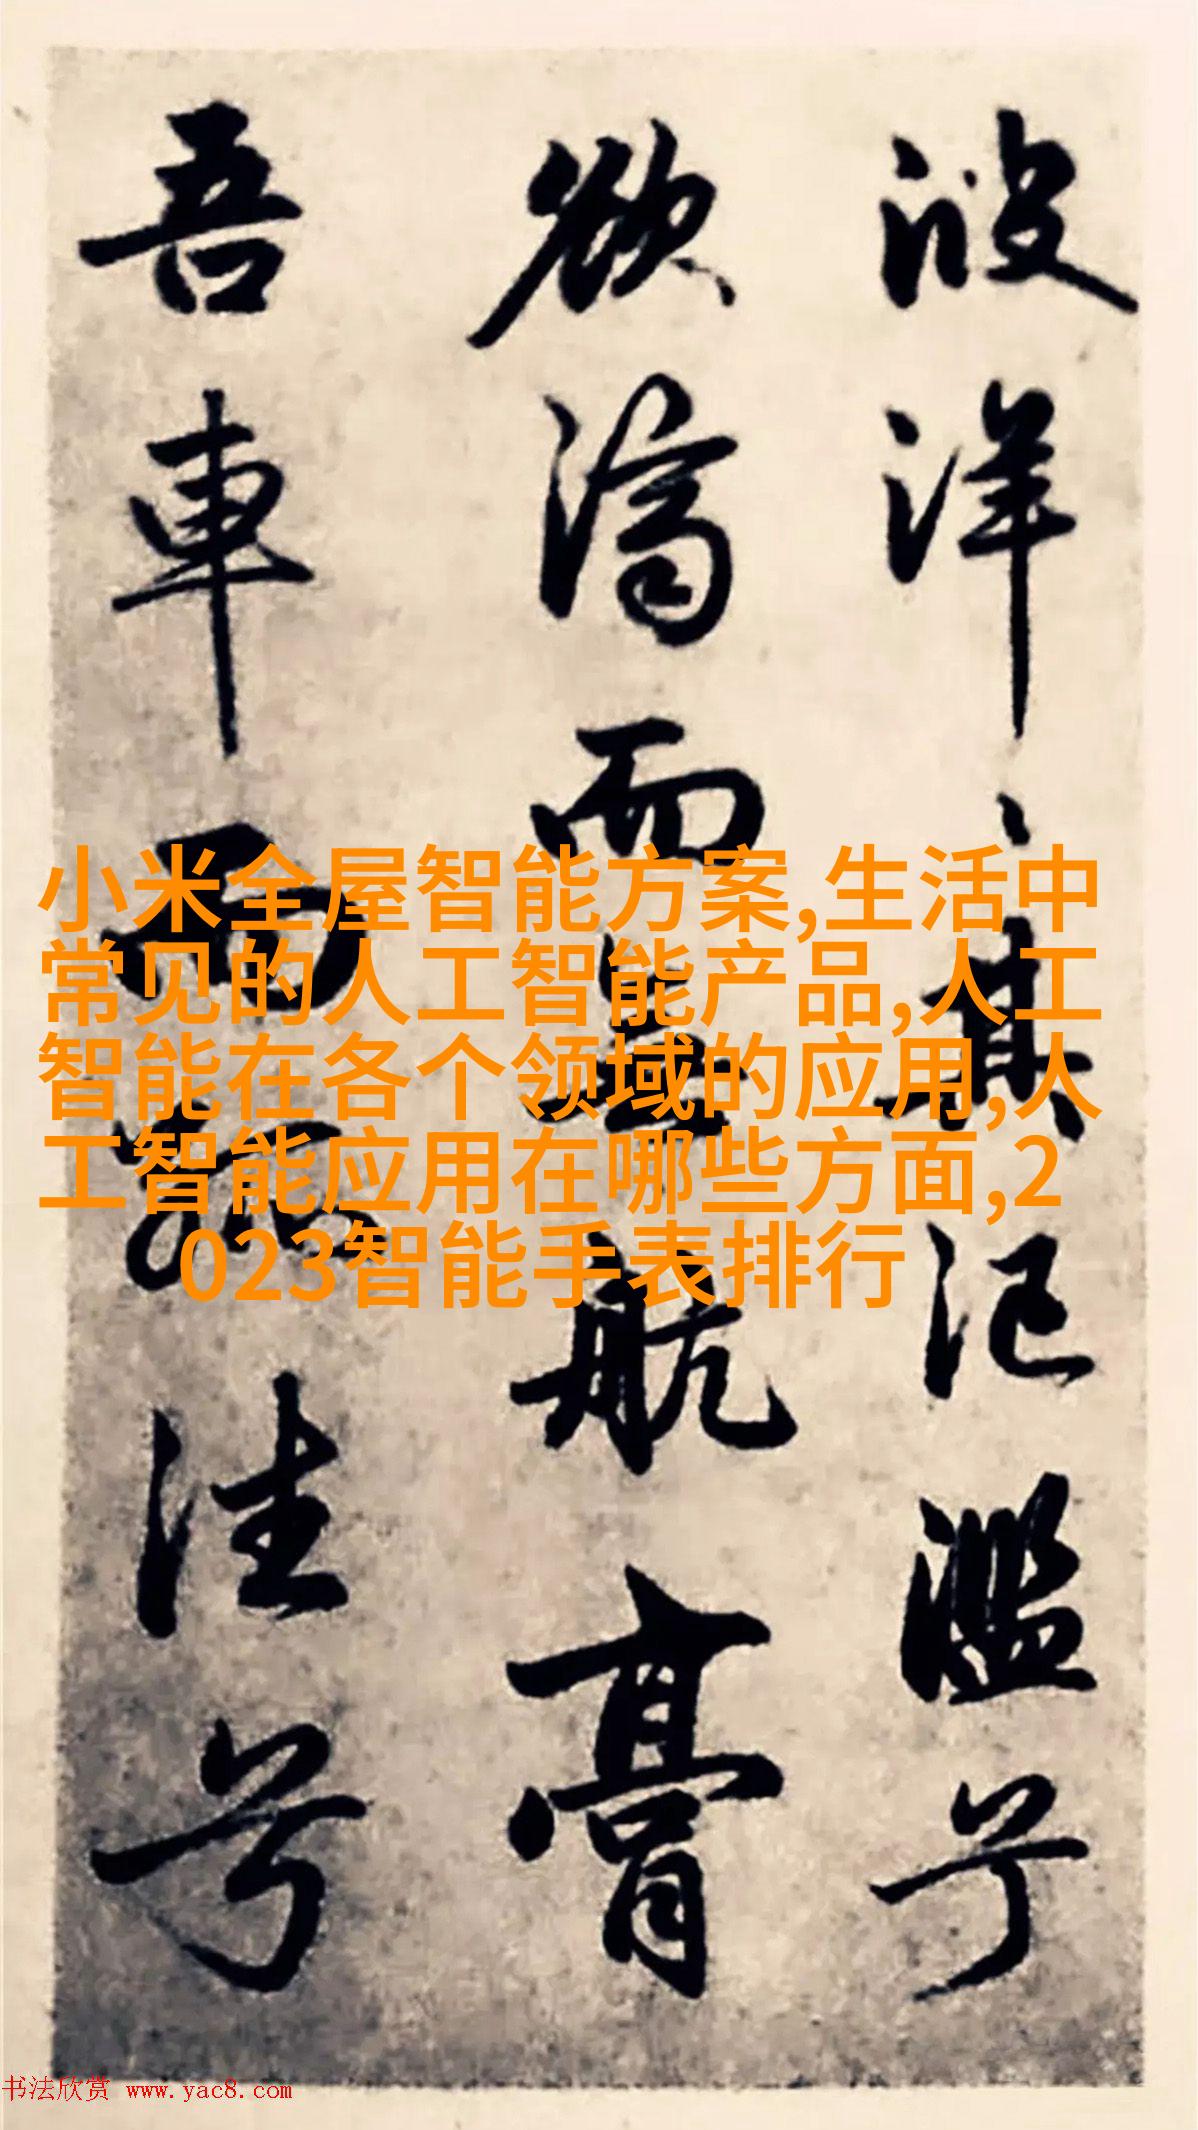 波洋之其氾濫兮
欲濟而無航膏
吾車而秣
注兮
小米全屋智能方案,生活中
常见的人工智能产品,人工
智能在各个领域的应用,人
工智能应用在哪些方面,2
023智能手表排行
书法欣赏 www.yac8.com